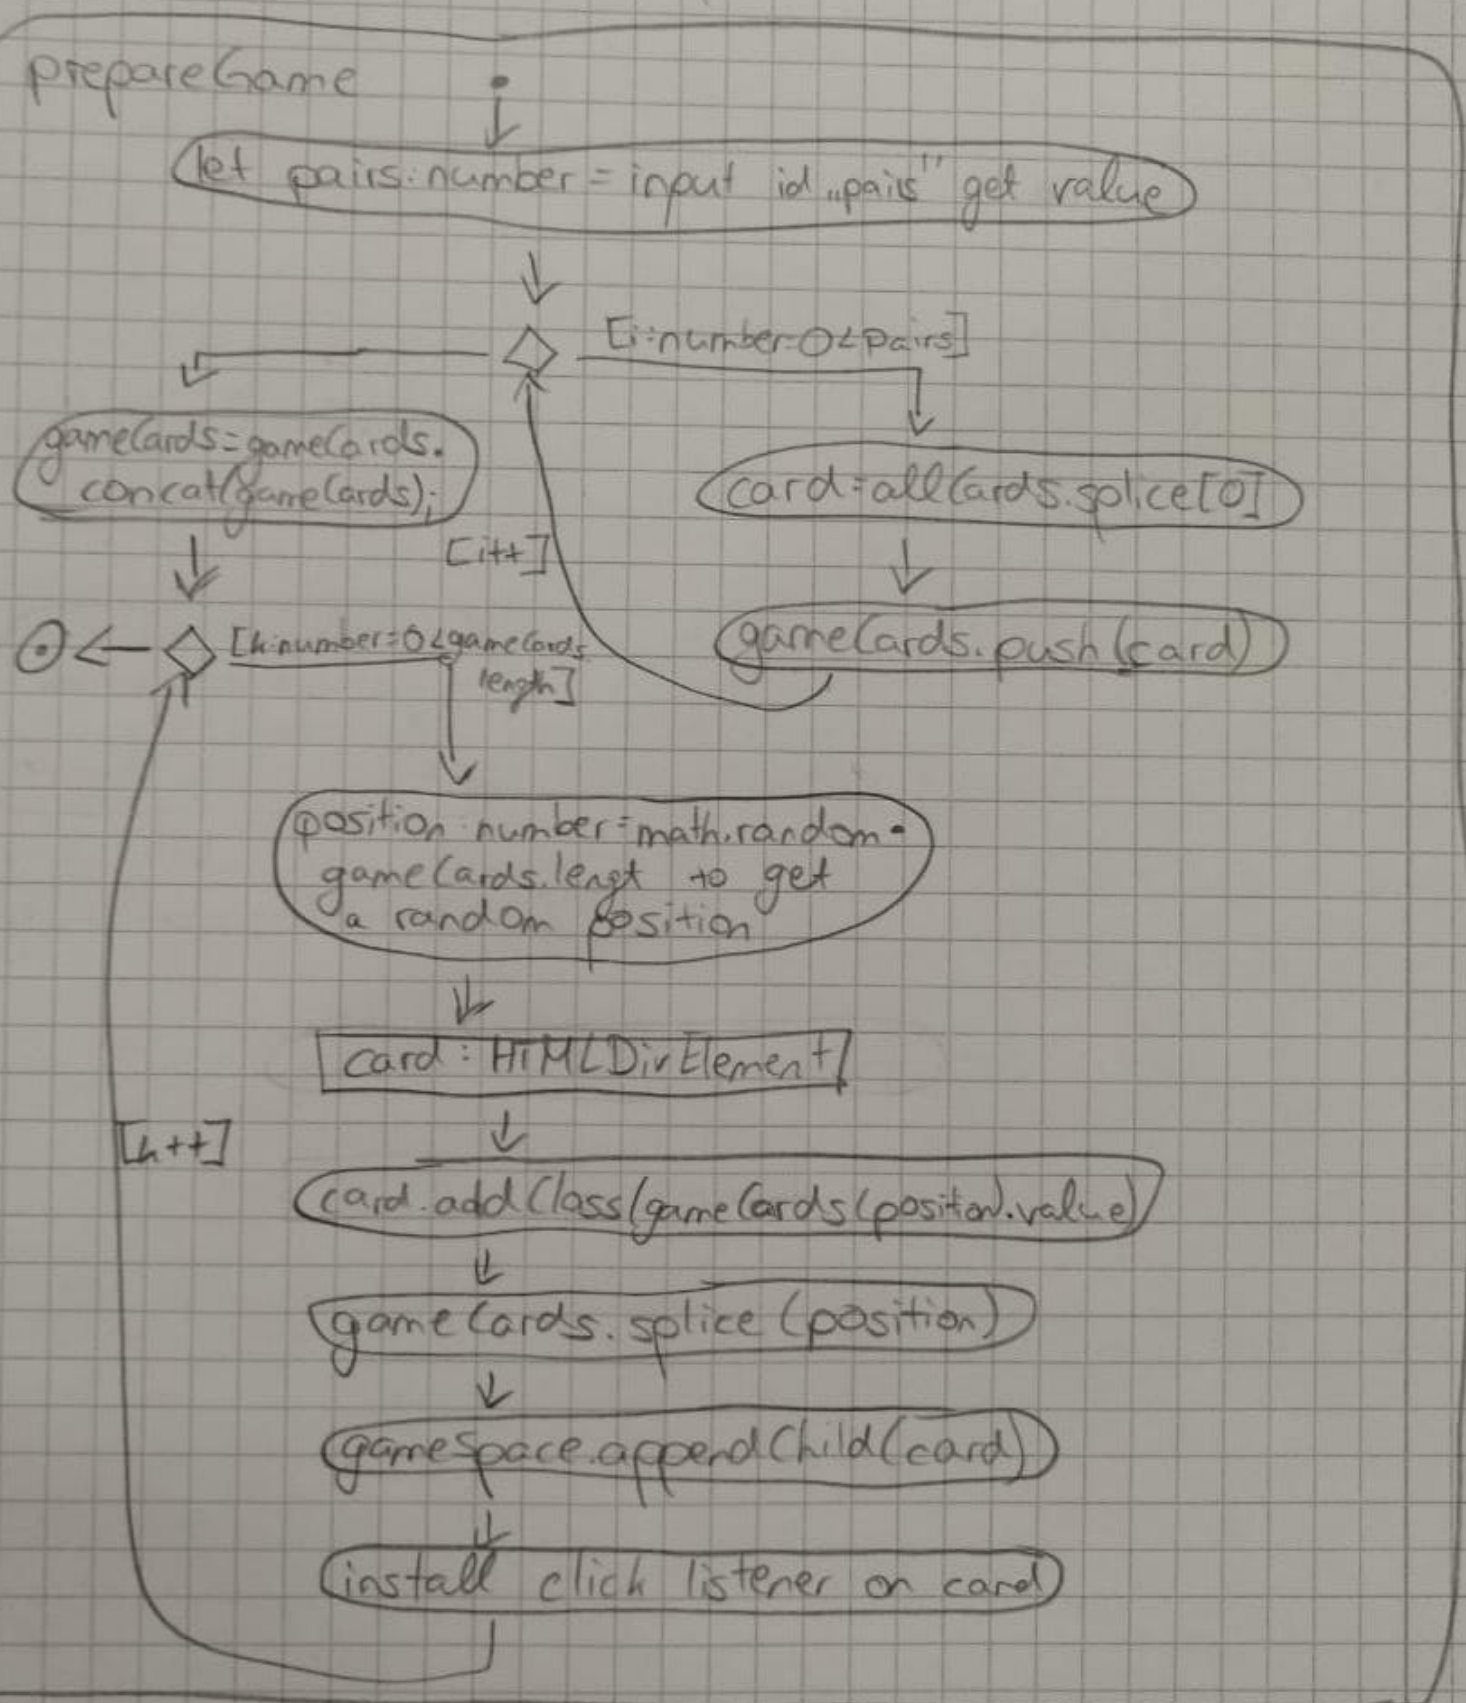 prepareGame
let pairs:number = input id „pairs" get value
[i:number=0<pairs]
gameCards=gameCards.
concat(gameCards);
card=allCards.splice[0]
[i++]
gameCards.push(card)
[h:number=0<gameCards
length]
position:number=math.random•
gameCards.lengt to get
a random position
card: HTMLDivElement
[h++]
card.addClass(gameCards(positon).value)
gameCards.splice(position)
gamespace.appendChild(card)
install click listener on card